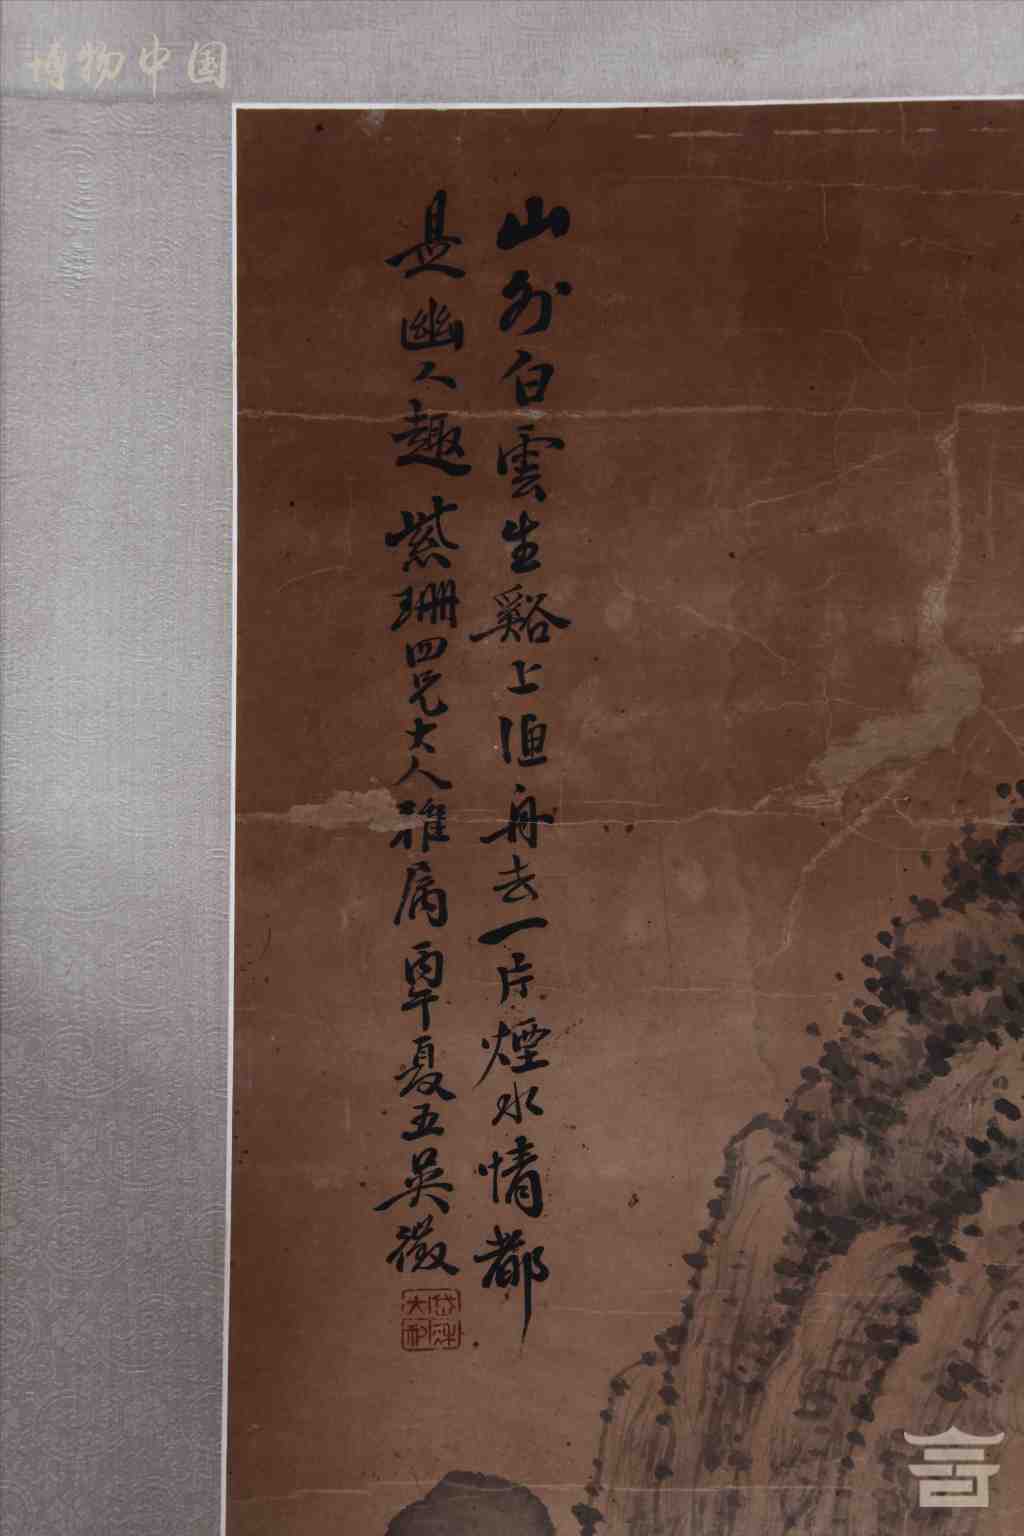 博物中国
山外白雲生谿上漁舟去一片煙水情都
是幽人趣 紫珊四兄大人雅属 丙午夏五吳徵